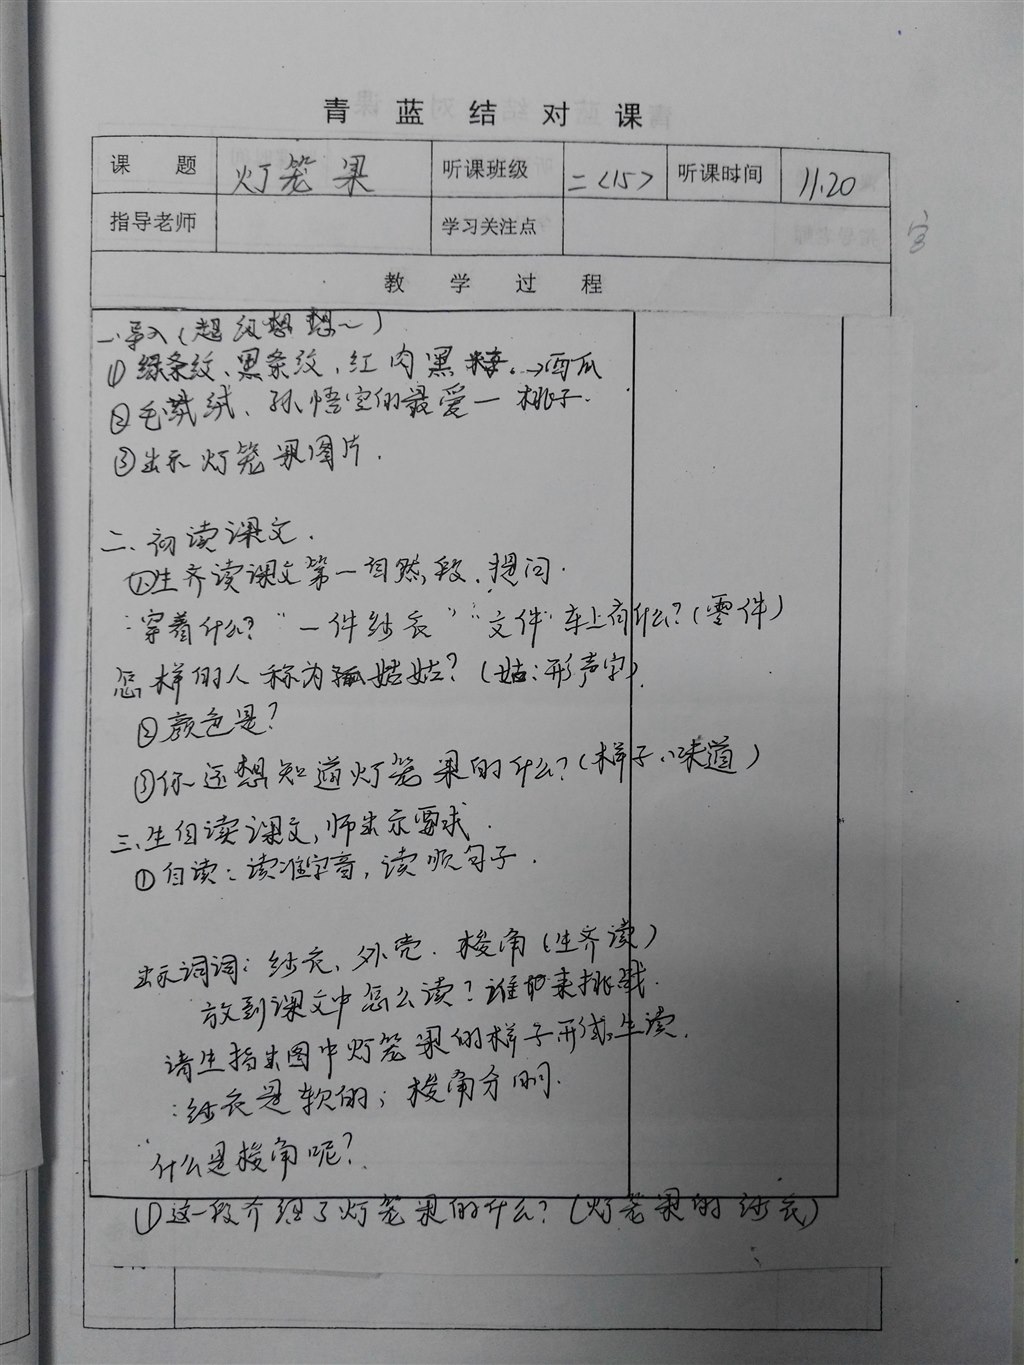 青 蓝 结 对 课
课 题 灯笼果 听课班级 二<15> 听课时间 11.20
指导老师 学习关注点
教 学 过 程
一.导入(超级想想~)
①绿条纹、黑条纹,红肉黑 →西瓜
②毛茸绒、孙悟空的最爱一 桃子.
③出示灯笼果图片.
二、初读课文.
①生齐读课文第一自然段.提问.
:穿着什么?"一件纱衣""文件"车上有什么?(零件)
怎样的人称为 姑姑?(姑:形声字)
②颜色是?
③你还想知道灯笼果的什么?(样子、味道)
三、生自读课文,师出示要求.
①自读:读准字音,读顺句子.
出示词词:纱衣、外壳.梭角(生齐读)
放到课文中怎么读?谁 来挑战.
请生指出图中灯笼果的样子 生读.
:纱衣是软的;梭角分明.
什么是梭角呢?
①这一段介绍了灯笼果的什么?(灯笼果的纱衣)